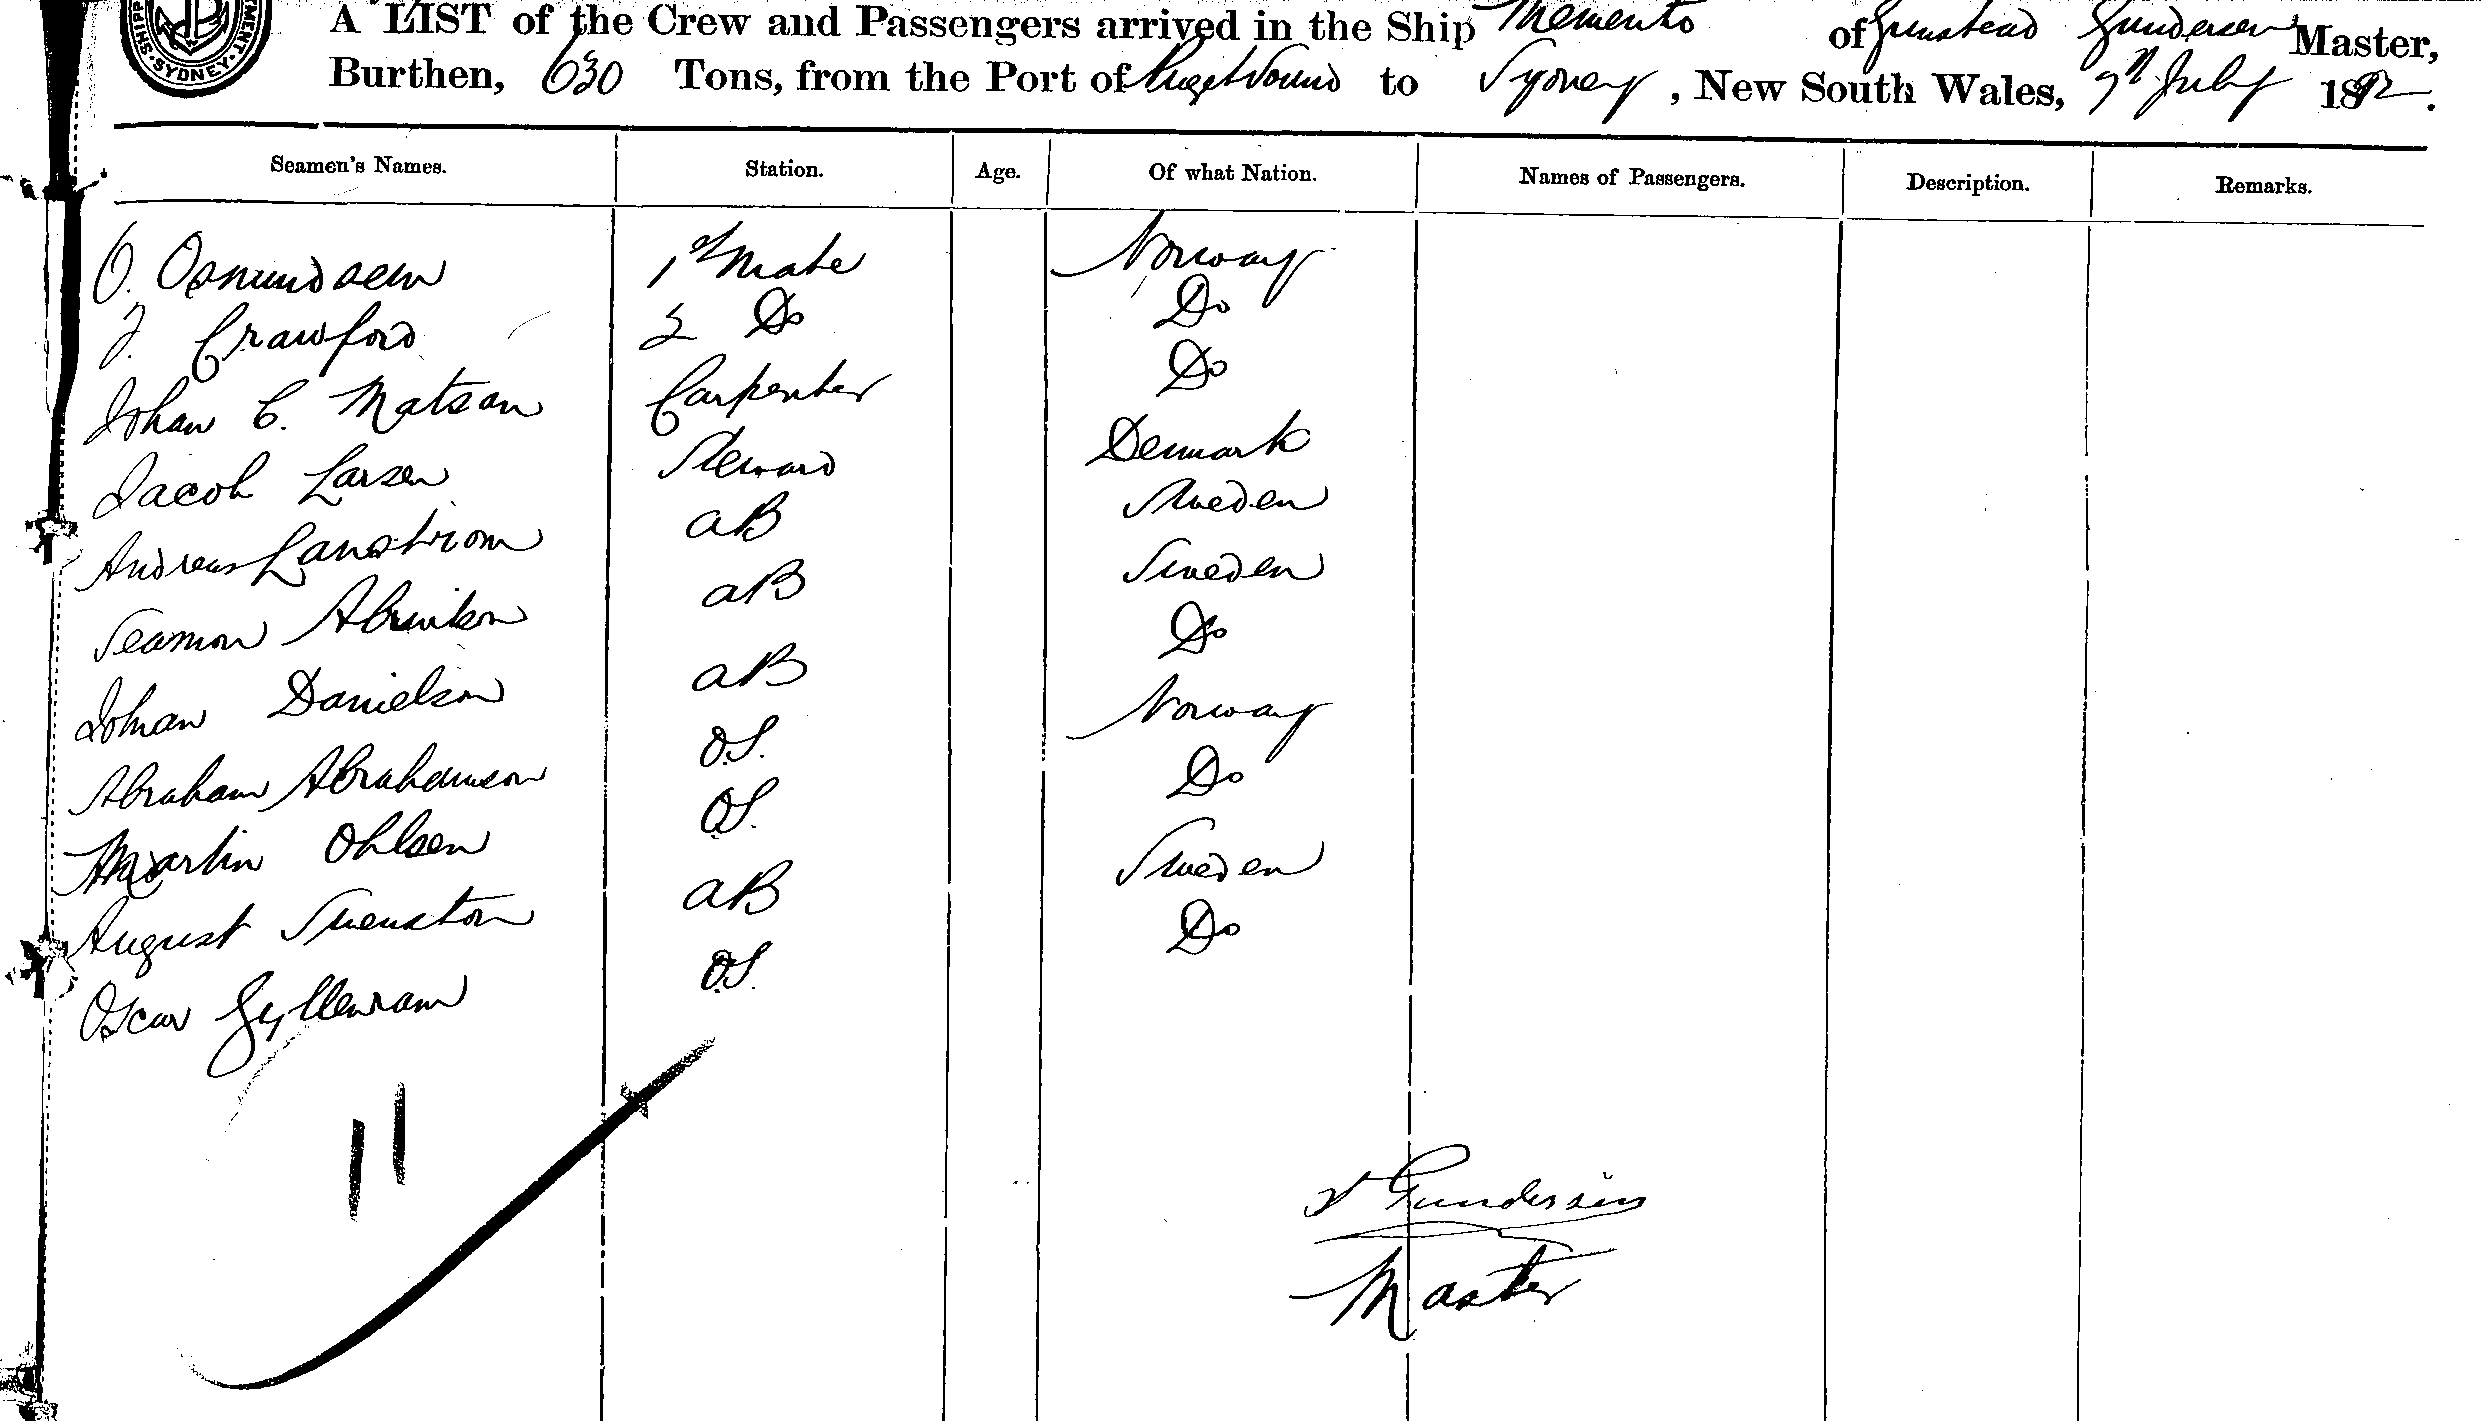 SHIPP MENT SYDNEY
A LIST of the Crew and Passengers arrived in the Ship Memento of Grimstead Gundersen Master,
Burthen, 630 Tons, from the Port of Puget Sound to Sydney, New South Wales, 7th July 1892.
Seamen's Names. Station. Age. Of what Nation. Names of Passengers. Description. Remarks.
O. Osmundsen 1st Mate Norway
J. Crawford 2 Do Do
Johan C. Matson Carpenter Do
Jacob Larsen Steward Denmark
Andreas Lanstrom AB Sweden
Seamon AB Sweden
Johan Danielson AB Do
Abraham Abrahamson OS. Norway
Martin Ohlsen OS. Do
August Svenston AB Sweden
Oscar Gyllenram OS. Do
11
Gundersen
Master